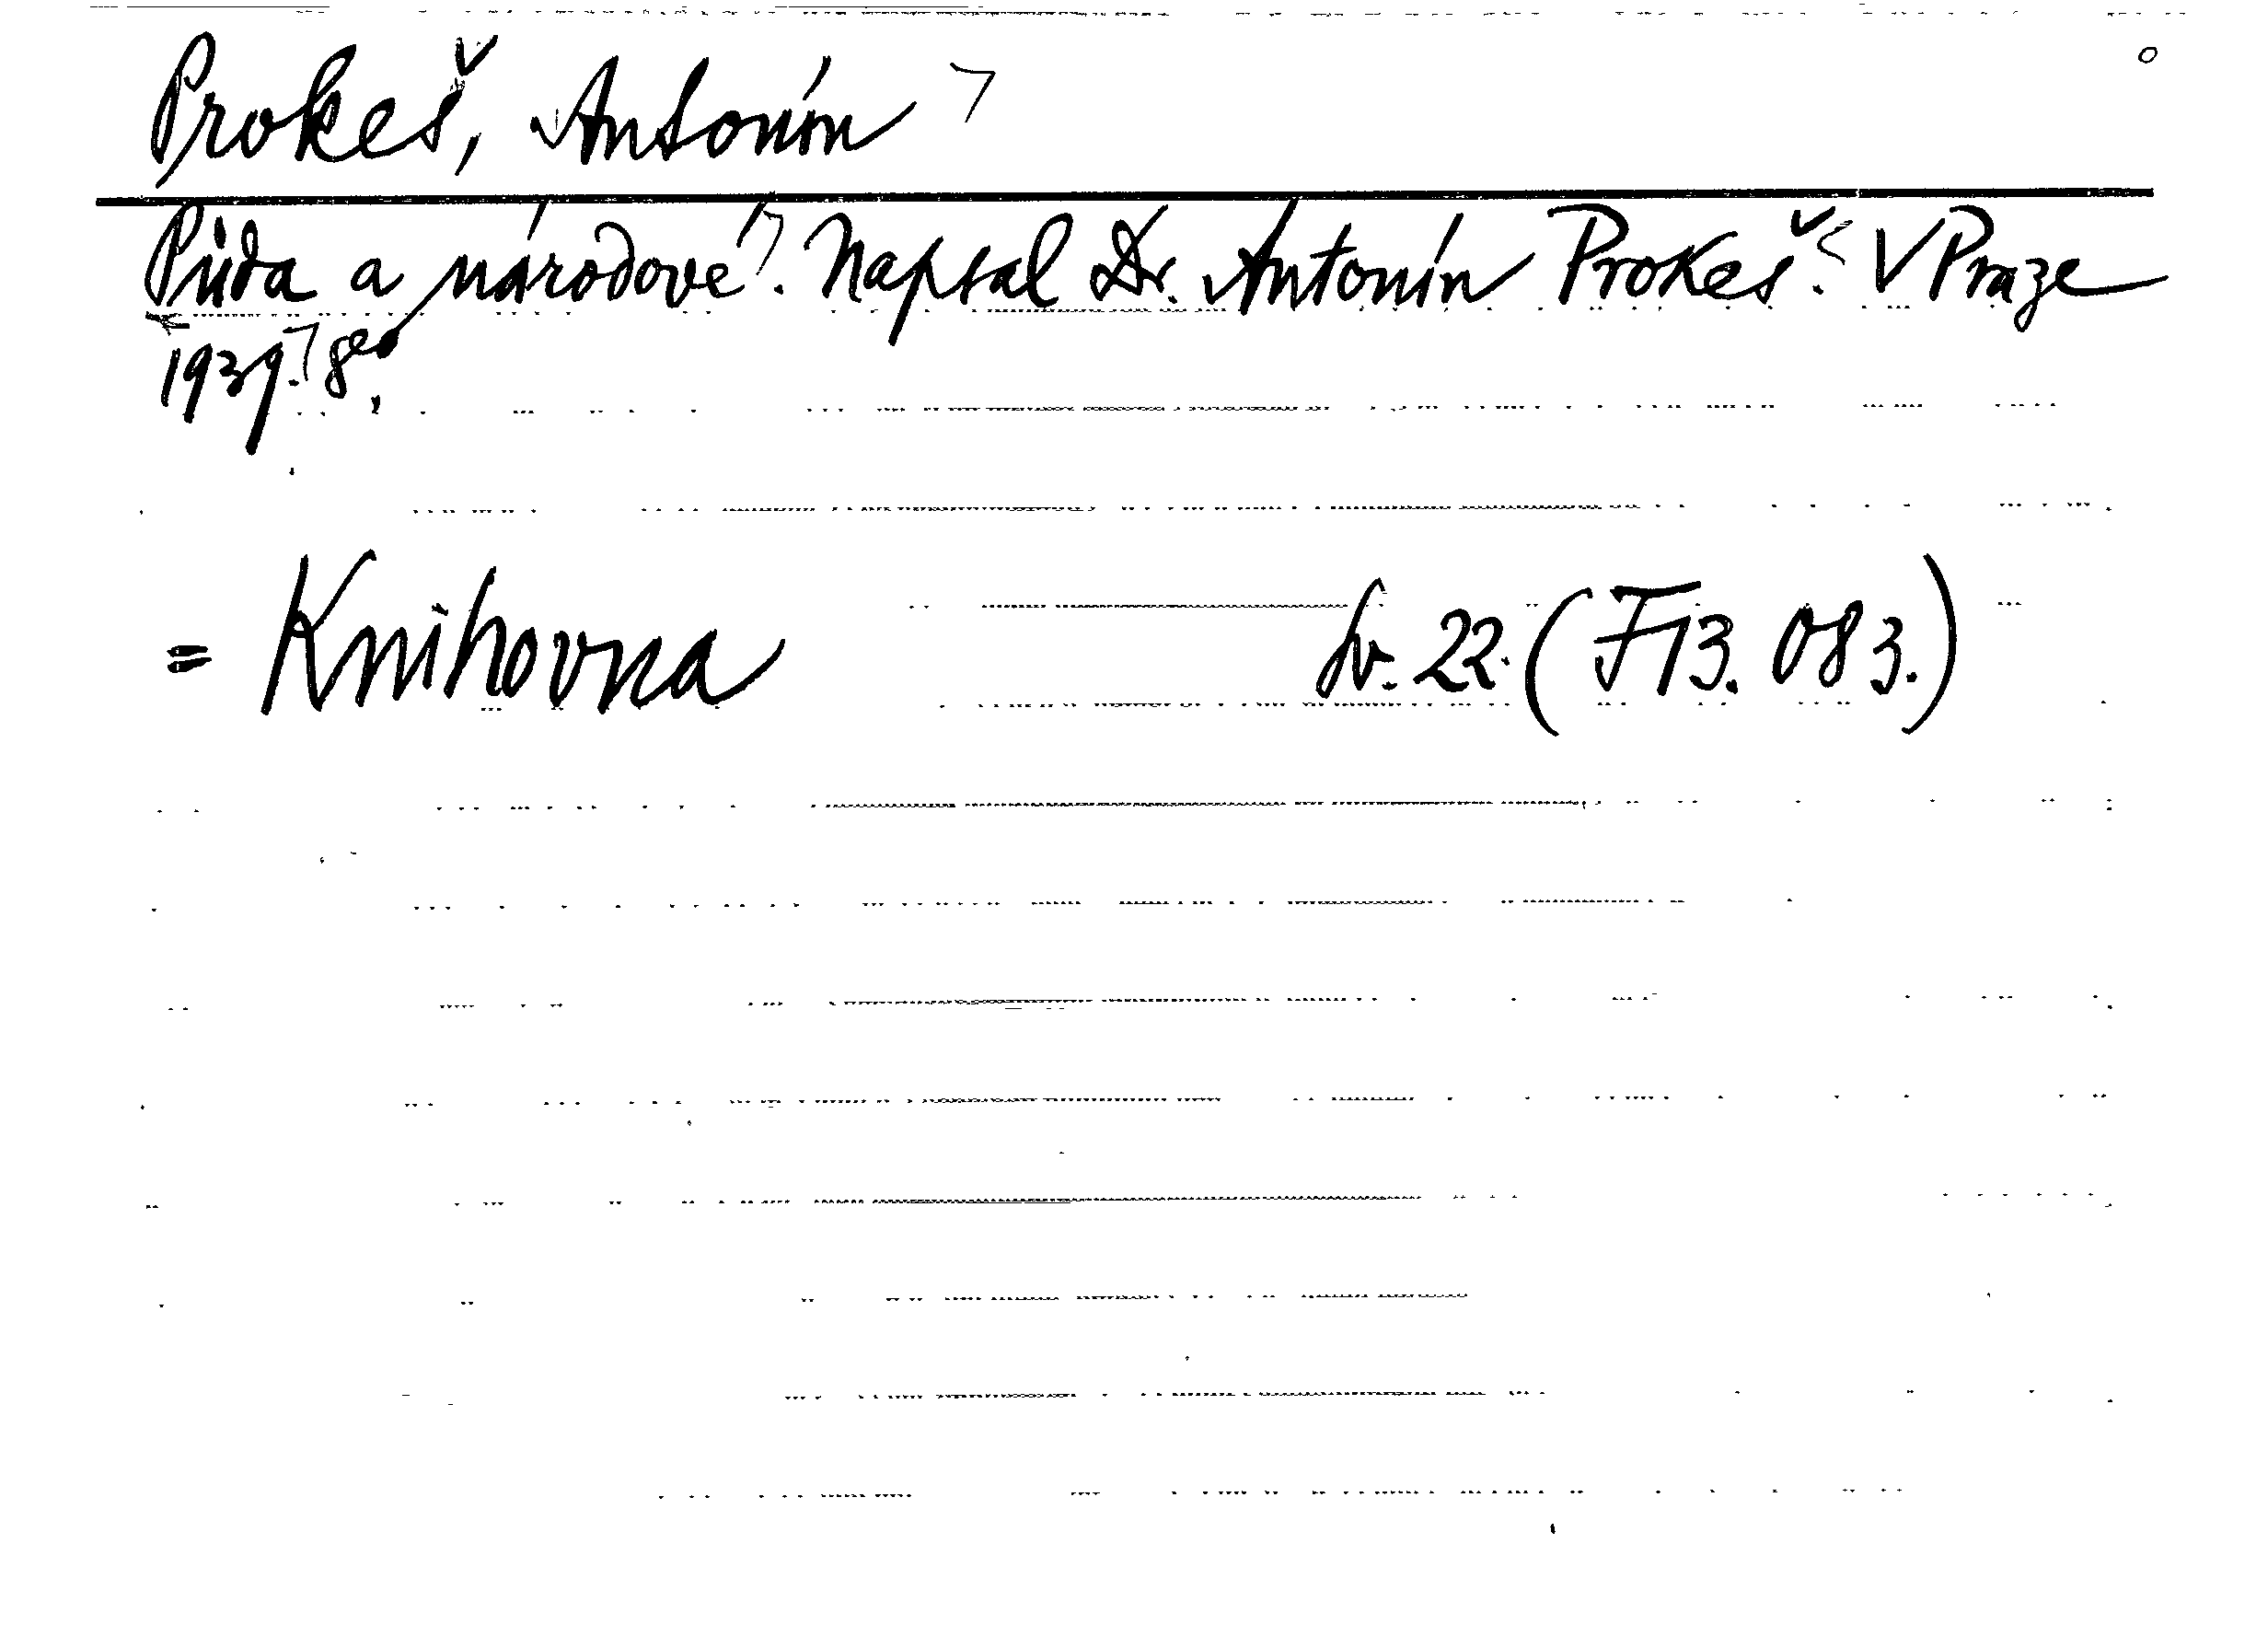 Prokeš, Antonín
Půda a národové. Napsal Dr. Antonín Prokeš. V Praze
1939. 8°.
= Knihovna sv. 22. (F 13. 083.)